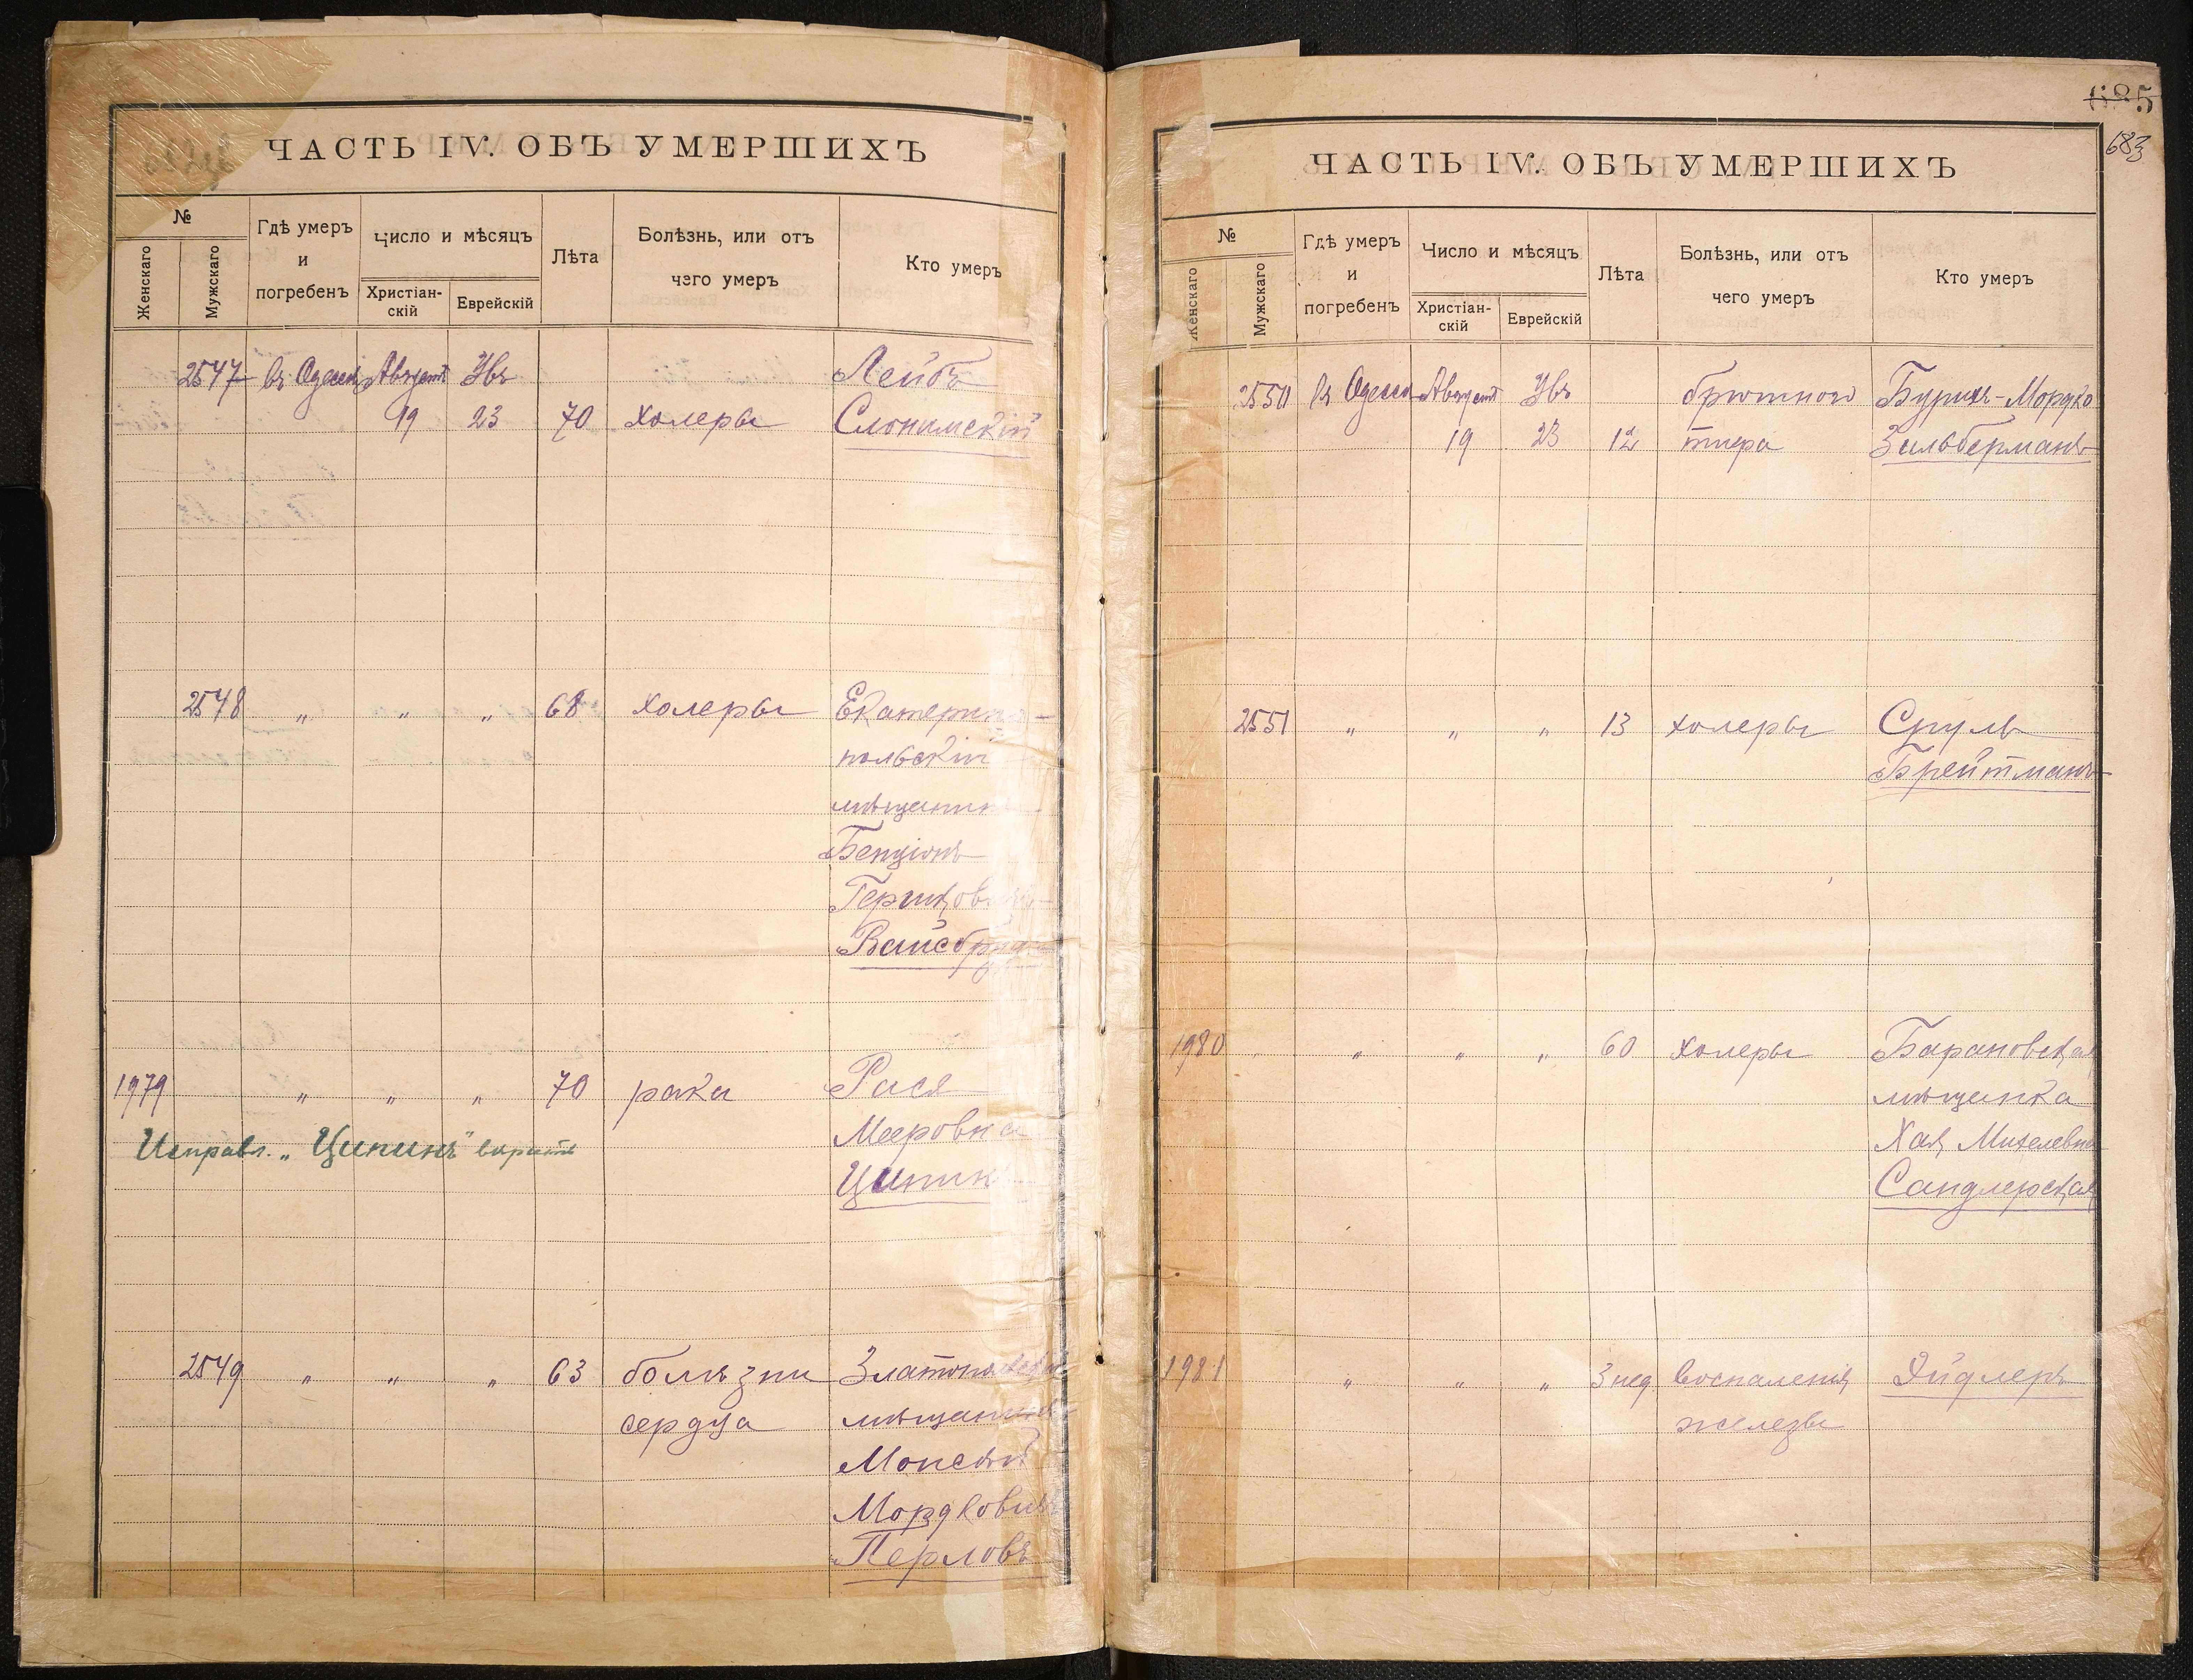 ЧАСТЬ IV. ОБЪ УМЕРШИХЪ
№
Женскаго
Мужскаго
Гдѣ умеръ
и
погребенъ
Число и мѣсяцъ
Христіан-
скій
Еврейскій
Лѣта
Болѣзнь, или отъ
чего умеръ
Кто умеръ
2547 въ Одессѣ Августъ Увъ Лейбъ
19 23 70 холеры Слонимскій
2548 " " " 68 холеры Екатерино-
польскій
мѣщанинъ
Бенціонъ
Гершковичъ
1979 " " " 70 рака Рася
Мееровна
Исправл. „Ципинъ" вѣрить
Ципинъ
2549 " " " 63 болѣзни Златопольскій
сердца мѣщанинъ
Моисей
Мордковичъ
Перловъ
685
683
ЧАСТЬ IV. ОБЪ УМЕРШИХЪ
№
Женскаго
Мужскаго
Гдѣ умеръ
и
погребенъ
Число и мѣсяцъ
Христіан-
скій
Еврейскій
Лѣта
Болѣзнь, или отъ
чего умеръ
Кто умеръ
2550 въ Одессѣ Августъ Увъ брюшного Мордко
19 23 12 тифа Зильберманъ
2551 " " " 13 холеры Сруль
Брейтманъ
1980 " " " 60 холеры Барановская
мѣщанка
Хая Михелевна
Сандлерская
1981 " " " 3 нед воспаленія Эйдлеръ
железы